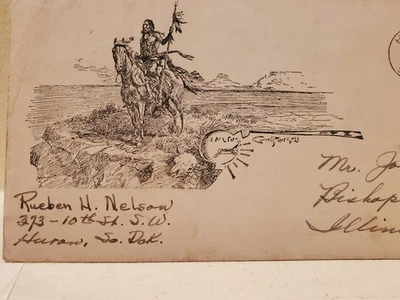 Rueben H. Nelson
373-10th St. S.W.
Huron, So. Dak.
Mr. Jo
Bishop
Illin